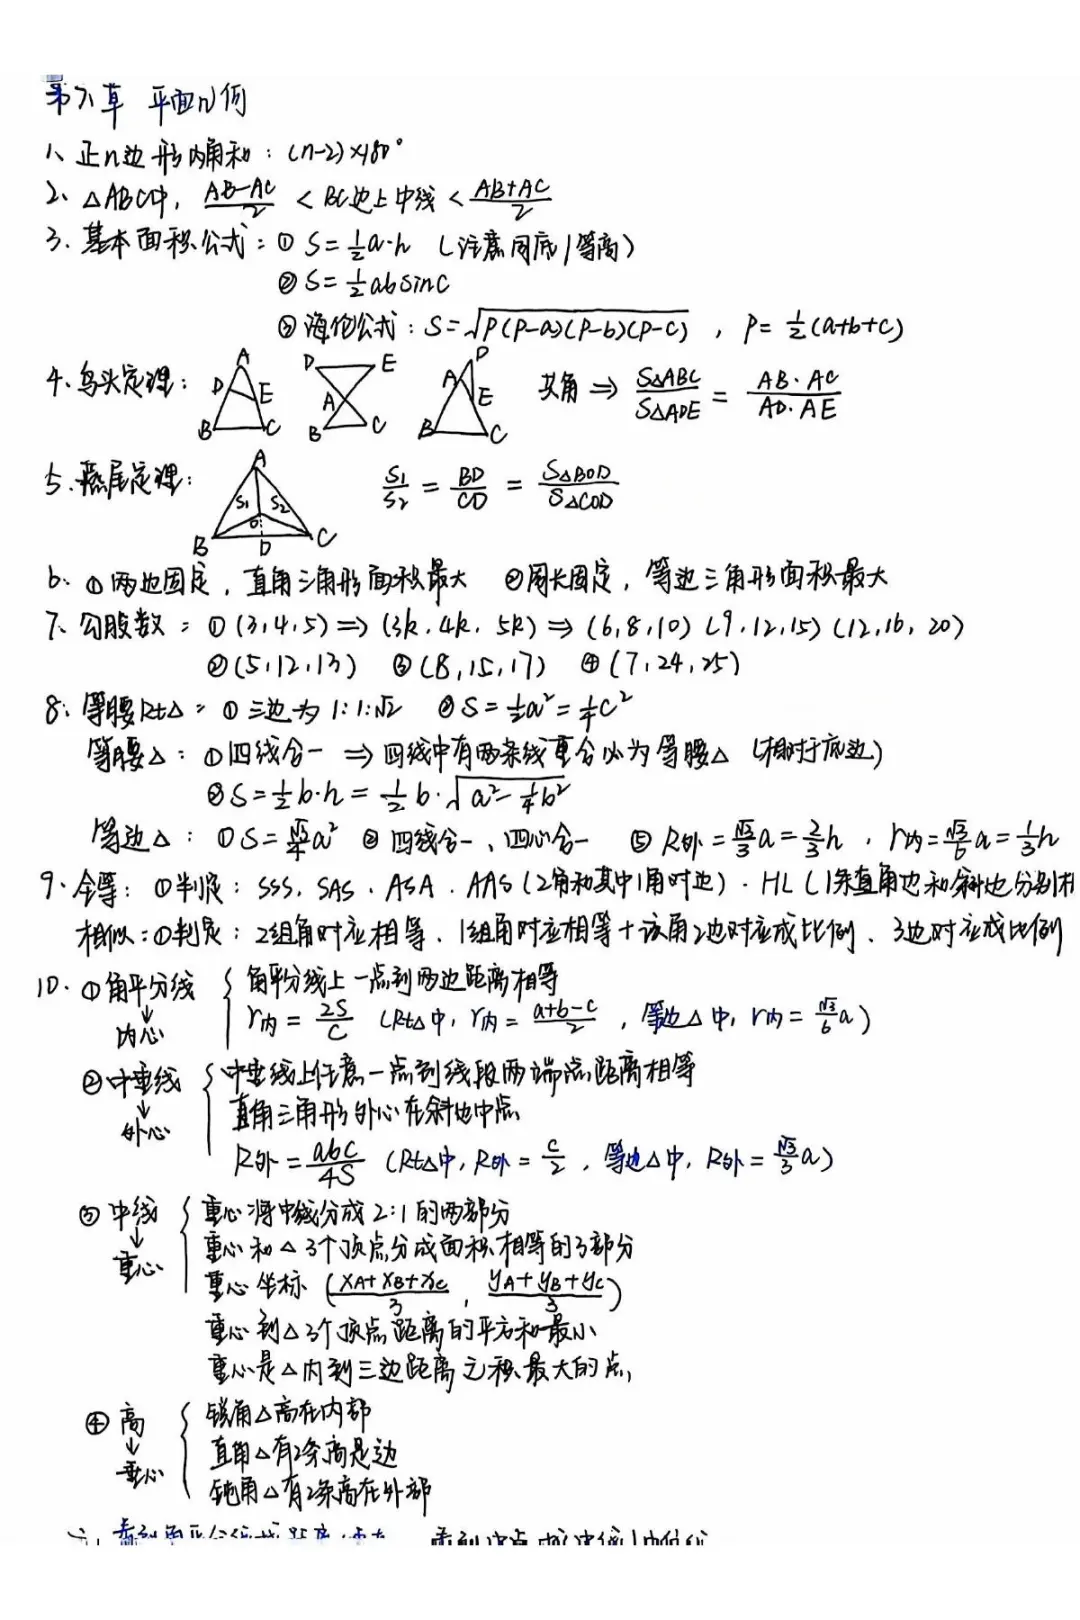 第六章 平面几何
1、正n边形内角和：(n-2)×180°
2、△ABC中，(AB-AC)/2 < BC边上中线 < (AB+AC)/2
3、基本面积公式：① S=½a·h （注意同底/等高）
② S=½absinC
③ 海伦公式：S=√(P(P-a)(P-b)(P-c))，P=½(a+b+c)
4、鸟头定理：A D E B C D E A B C D A E B C 共角 ⇒ S△ABC/S△ADE = AB·AC/AD·AE
5、燕尾定理：A S₁ S₂ O B D C S₁/S₂ = BD/CD = S△BOD/S△COD
6、①两边固定，直角三角形面积最大 ②周长固定，等边三角形面积最大
7、勾股数：①(3,4,5)⇒(3k,4k,5k)⇒(6,8,10)(9,12,15)(12,16,20)
②(5,12,13) ③(8,15,17) ④(7,24,25)
8、等腰Rt△：①三边为1:1:√2 ②S=½a²=¼c²
等腰△：①四线合一 ⇒ 四线中有两条线重合必为等腰△（相对于底边）
②S=½b·h=½b·√(a²-¼b²)
等边△：①S=√3/4a² ②四线合一、四心合一 ③R外=√3/3a=2/3h，r内=√3/6a=1/3h
9、全等：①判定：SSS、SAS、ASA、AAS（2角和其中1角对边）、HL（1条直角边和斜边分别相
相似：①判定：2组角对应相等、1组角对应相等+该角2边对应成比例、3边对应成比例
10、①角平分线 ↓ 内心 { 角平分线上一点到两边距离相等
r内=2S/C （Rt△中，r内=(a+b-c)/2，等边△中，r内=√3/6a）
②中垂线 ↓ 外心 { 中垂线上任意一点到线段两端点距离相等
直角三角形外心在斜边中点
R外=abc/4S （Rt△中，R外=c/2，等边△中，R外=√3/3a）
③中线 ↓ 重心 { 重心将中线分成2:1的两部分
重心和△3个顶点分成面积相等的3部分
重心坐标 ((xA+xB+xC)/3，(yA+yB+yC)/3)
重心到△3个顶点距离的平方和最小
重心是△内到三边距离之积最大的点
④高 ↓ 垂心 { 锐角△高在内部
直角△有2条高是边
钝角△有2条高在外部